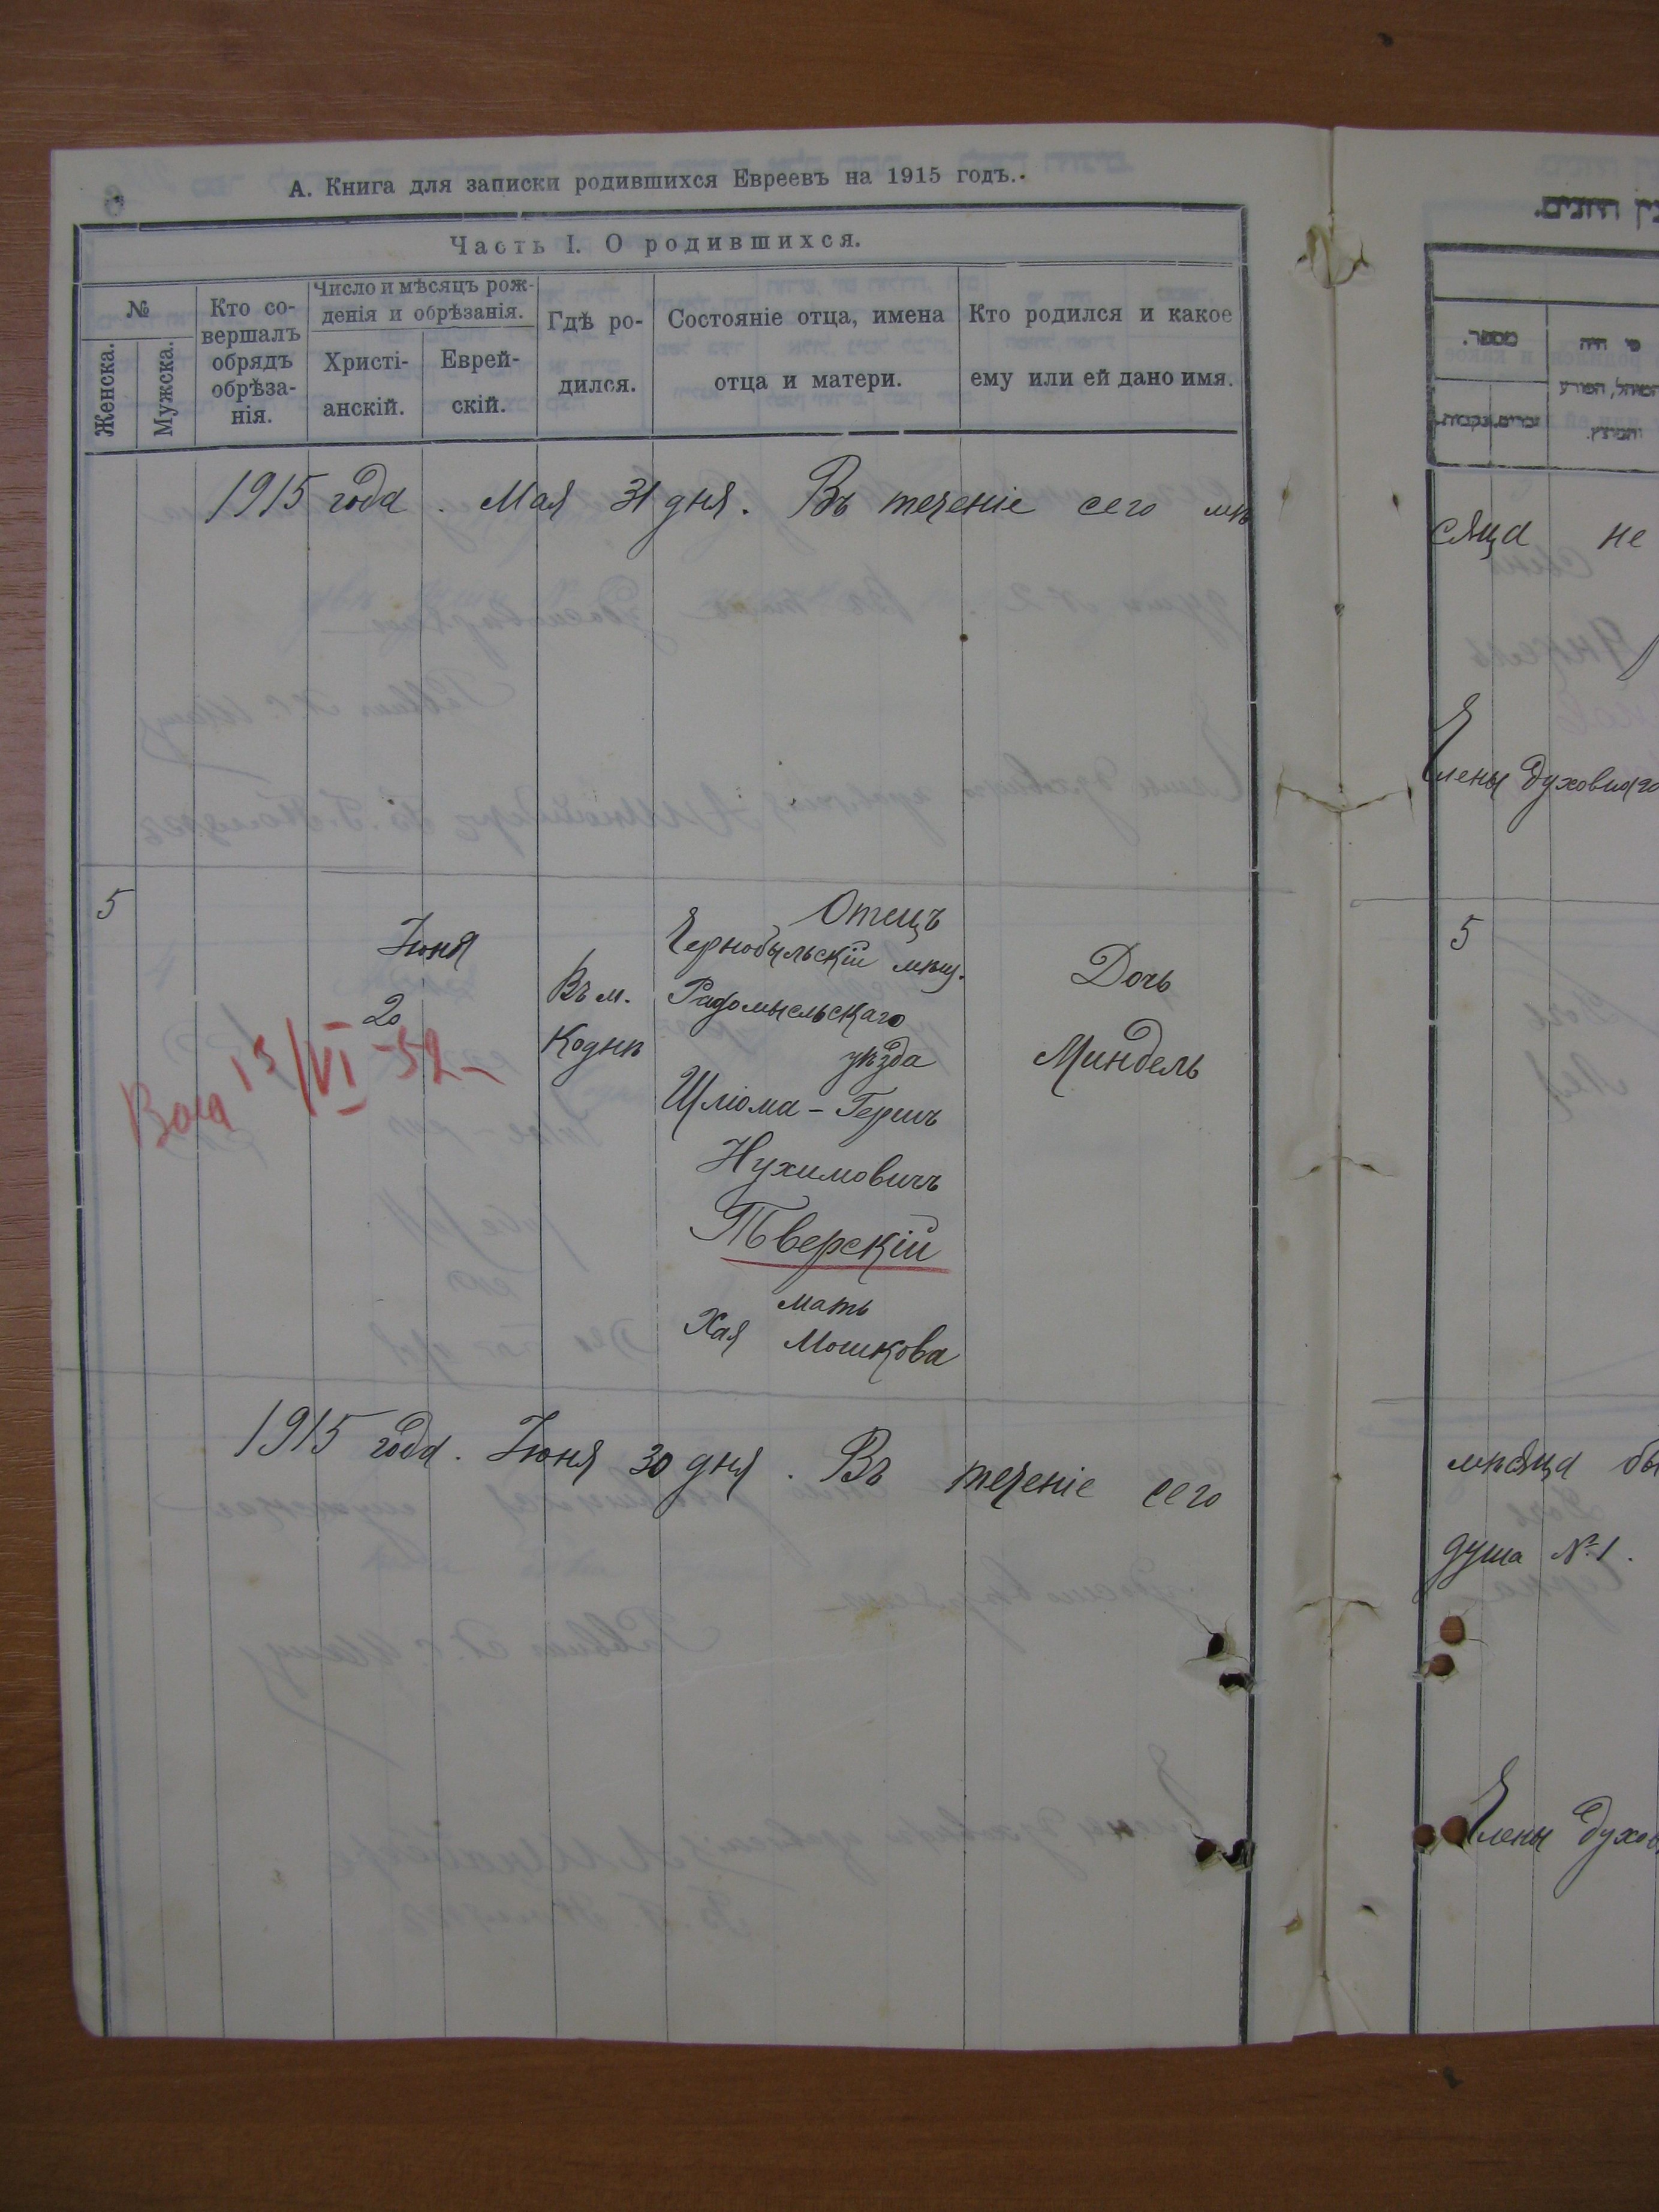 А. Книга для записки родившихся Евреевъ на 1915 годъ.
Часть I. О родившихся.
№
Женска.
Мужска.
Кто со-
вершалъ
обрядъ
обрѣза-
нія.
Число и мѣсяцъ рож-
денія и обрѣзанія.
Христі-
анскій.
Еврей-
скій.
Гдѣ ро-
дился.
Состояніе отца, имена
отца и матери.
Кто родился и какое
ему или ей дано имя.
1915 года. Мая 31 дня. Въ теченіе сего мѣ
5
Іюня
20
Въ м.
Коднѣ
Отецъ
Чернобыльскій мѣщ.
Радомысльскаго
уѣзда
Шлюма-Гершъ
Нухимовичъ
Тверскій
мать
Хая Мошкова
Дочь
Миндель
13/VI-52
1915 года. Іюня 30 дня. Въ теченіе сего
сяца не
Члены духовнаго
5
мѣсяца бы
душа №1.
Члены духов